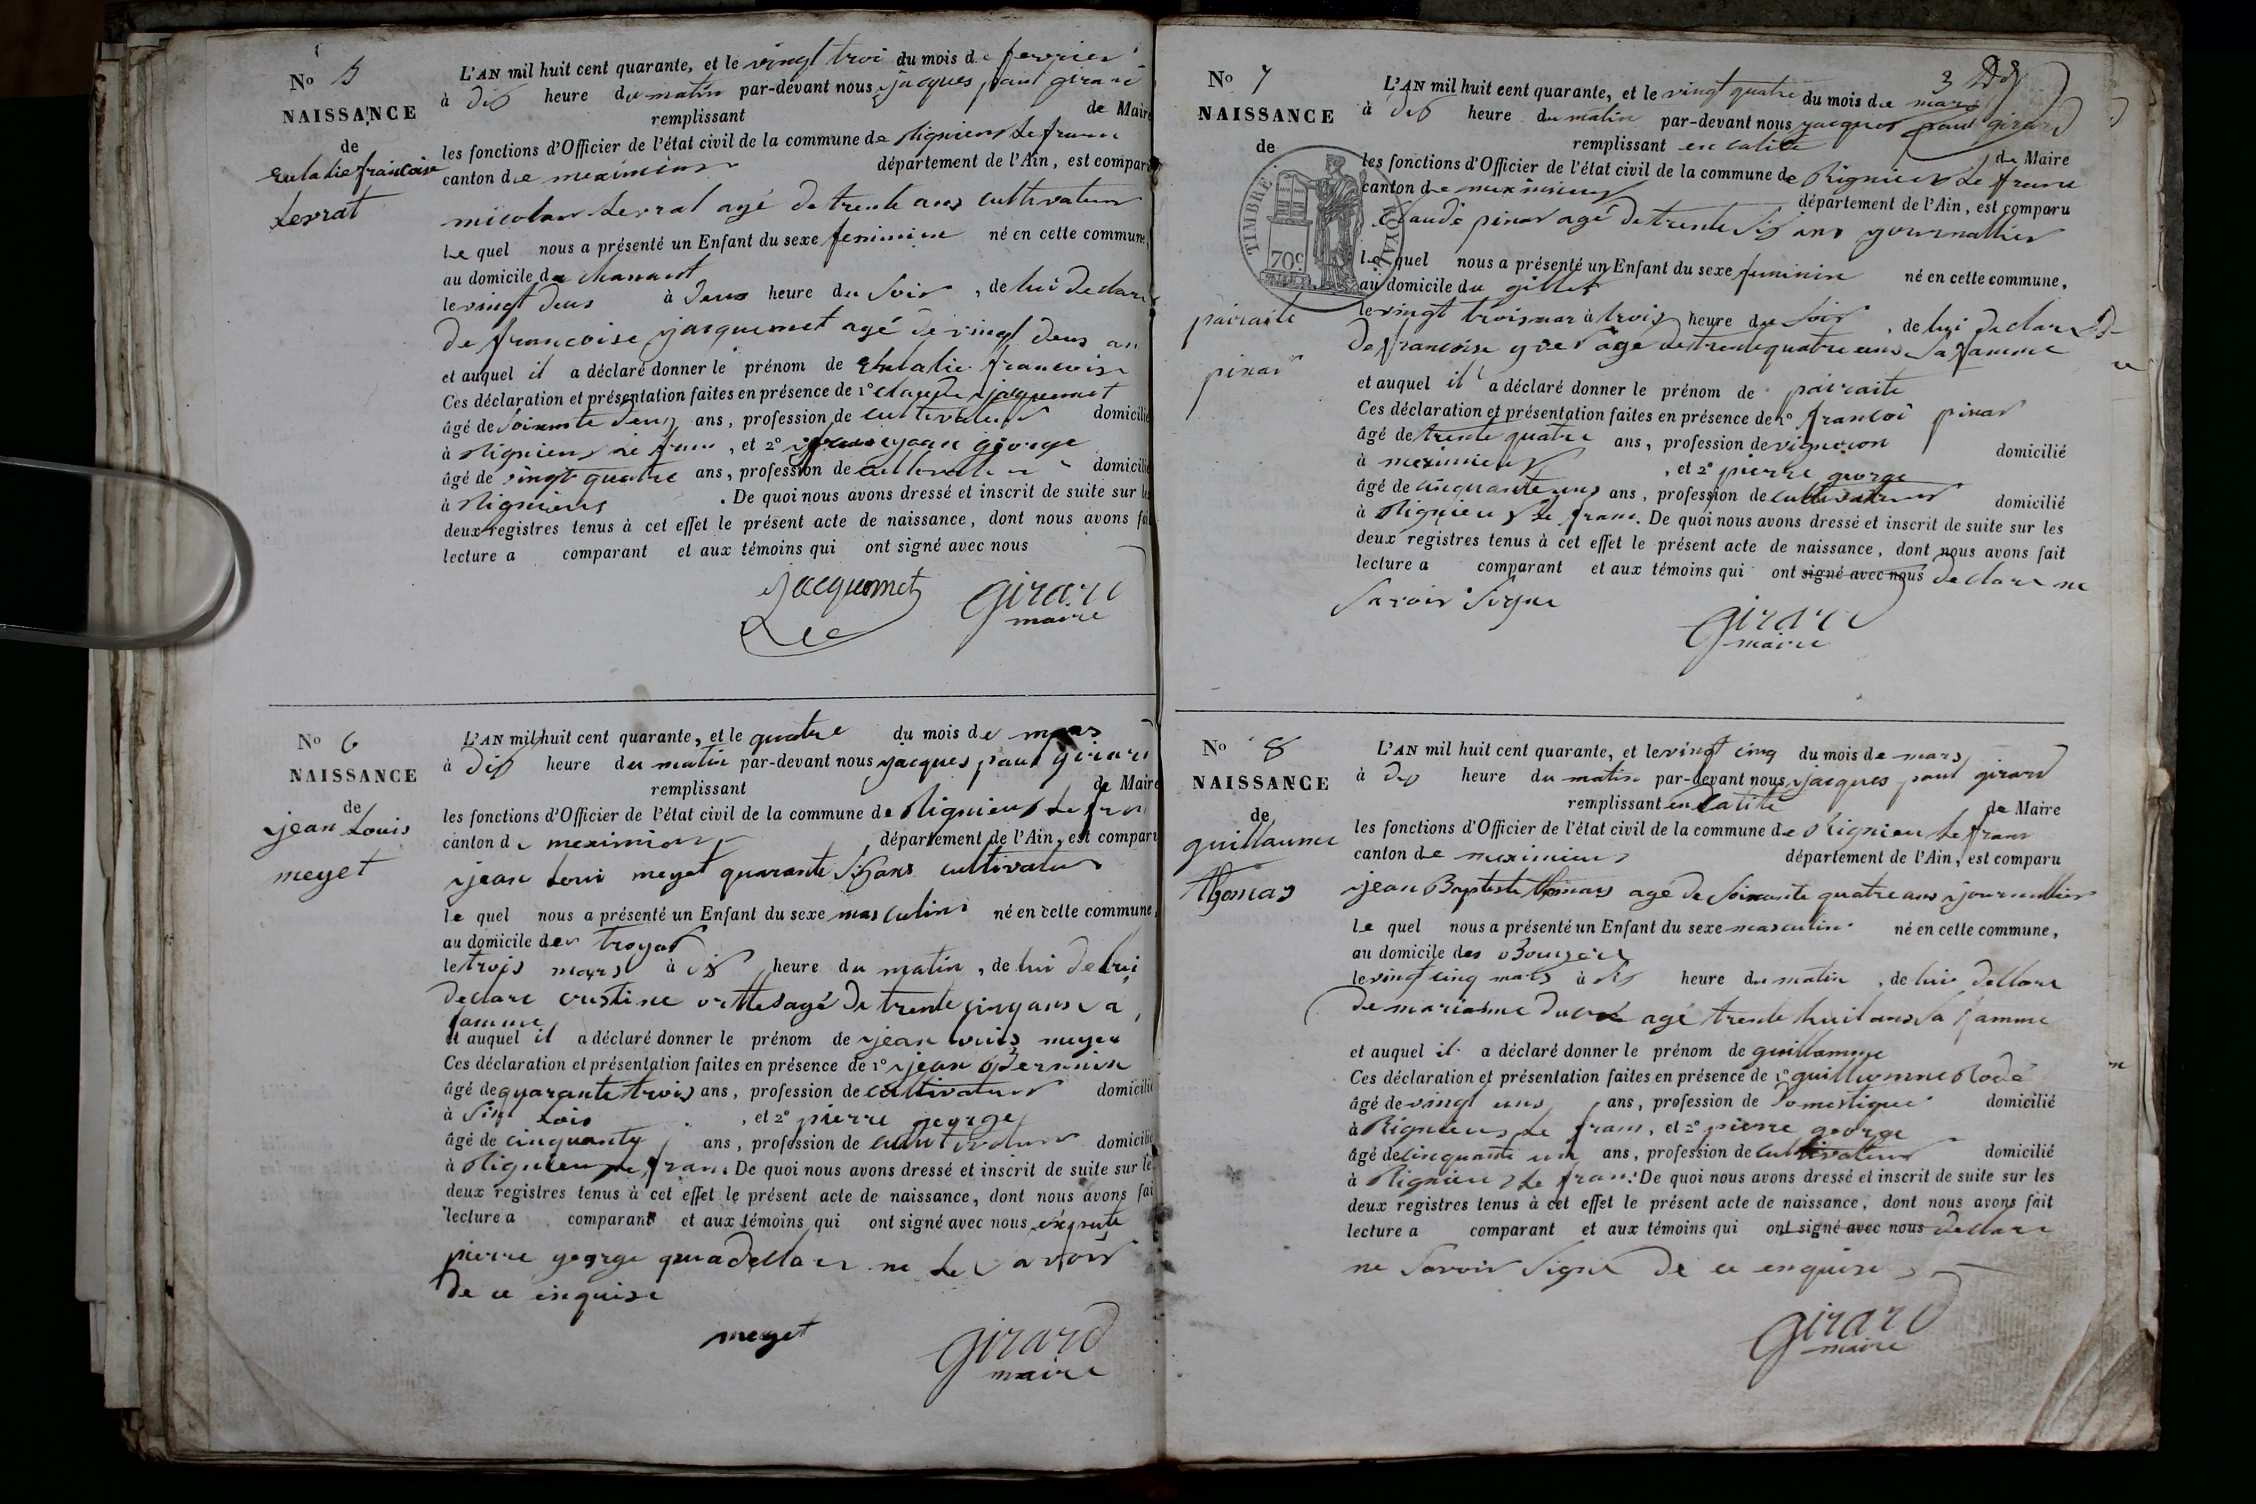 No 5
NAISSANCE
de
eulalie francoise
Levrat
L'AN mil huit cent quarante, et le vingt troi du mois de fevrier
à dix heure du matin par-devant nous jacques paul girard
remplissant de Maire
les fonctions d'Officier de l'état civil de la commune de Rignieux le franc
canton de meximieux département de l'Ain, est comparu
nicolas Levrat agé de trente ans cultivateur
Le quel nous a présenté un Enfant du sexe feminine né en cette commune,
au domicile du
le vingt deux à deux heure du soir, de lui declare
de francoise jacquemet agé de vingt deux an
et auquel il a déclaré donner le prénom de Eulalie francoise
Ces déclaration et présentation faites en présence de 1º claude jacquemet
âgé de soixante deux ans, profession de cultivateur domicilié
à Rignieux le franc, et 2º george
âgé de vingt quatre ans, profession de cultivateur domicilié
à Rignieux. De quoi nous avons dressé et inscrit de suite sur les
deux registres tenus à cet effet le présent acte de naissance, dont nous avons fait
lecture a comparant et aux témoins qui ont signé avec nous
Jacquemet girard
maire
No 6
NAISSANCE
de
jean Louis
meyet
L'AN mil huit cent quarante, et le quatre du mois de mars
à dix heure du matin par-devant nous jacques paul girard
remplissant de Maire
les fonctions d'Officier de l'état civil de la commune de Rignieux le franc
canton de meximieux département de l'Ain, est comparu
jean Loui meyet quarante six ans cultivateur
le quel nous a présenté un Enfant du sexe masculin né en cette commune,
au domicile des troyat
le trois mars à dix heure du matin, de lui de lui
declare cristine agé de trente cinq ans sa
famme
et auquel il a déclaré donner le prénom de jean louis meyet
Ces déclaration et présentation faites en présence de 1º jean
âgé de quarante trois ans, profession de cultivateur domicilié
à , et 2º pierre george
âgé de cinquante ans, profession de cultivateur domicilié
à Rignieux le franc De quoi nous avons dressé et inscrit de suite sur les
deux registres tenus à cet effet le présent acte de naissance, dont nous avons fait
lecture a comparant et aux témoins qui ont signé avec nous
pierre george qui a dellare ne le savoir
de ce enquise
meyet girard
maire
3
No 7
NAISSANCE
de
TIMBRE ROYAL
70c
pairaite
pinar
L'AN mil huit cent quarante, et le vingt quatre du mois de mars
à dix heure du matin par-devant nous jacques paul girard
remplissant en calite de Maire
les fonctions d'Officier de l'état civil de la commune de Rignieux le franc
canton de meximieux département de l'Ain, est comparu
Claude pinar agé de trente six ans journallier
le quel nous a présenté un Enfant du sexe feminin né en cette commune,
au domicile du gillet
le vingt trois mar à trois heure du soir, de lui declare
de francoise agé de trente quatre ans sa famme
et auquel il a déclaré donner le prénom de pairaite
Ces déclaration et présentation faites en présence de 1º francoi pinar
âgé de trente quatre ans, profession de vigneron domicilié
à meximieux, et 2º pierre george
âgé de cinquante uns ans, profession de cultivateur domicilié
à Rignieux le franc. De quoi nous avons dressé et inscrit de suite sur les
deux registres tenus à cet effet le présent acte de naissance, dont nous avons fait
lecture a comparant et aux témoins qui ont signé avec nous declare ne
savoir signe
girard
maire
No 8
NAISSANCE
de
guillaume
thomas
L'AN mil huit cent quarante, et le vingt cinq du mois de mars
à dix heure du matin par-devant nous jacques paul girard
remplissant en calite de Maire
les fonctions d'Officier de l'état civil de la commune de Rignieu le franc
canton de meximieux département de l'Ain, est comparu
jean Baptiste thomas agé de soixante quatre ans journallier
le quel nous a présenté un Enfant du sexe masculin né en cette commune,
au domicile des
le vingt cinq mars à dix heure du matin, de lui dellare
de marianne agé trente huit ans sa famme
et auquel il a déclaré donner le prénom de guillaumme
Ces déclaration et présentation faites en présence de 1º guillaumme Rodé
âgé de vingt uns ans, profession de domestique domicilié
à Rignieux le franc, et 2º pierre george
âgé de cinquante un ans, profession de cultivateur domicilié
à Rignieux le franc. De quoi nous avons dressé et inscrit de suite sur les
deux registres tenus à cet effet le présent acte de naissance, dont nous avons fait
lecture a comparant et aux témoins qui ont signé avec nous dellare
ne savoir signe de ce enquise
girard
maire